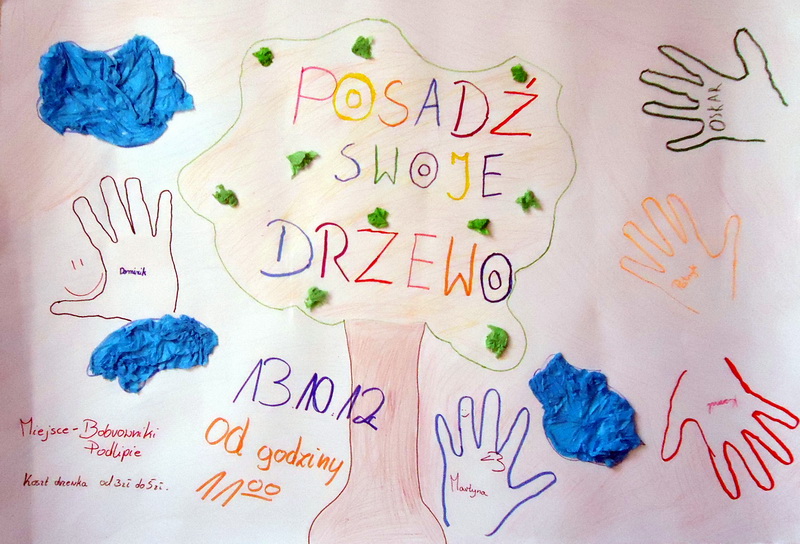 POSADŹ
SWOJE
DRZEWO
OSKAR
Dominik
Martyna
13.10.12
od godziny
11 00
Miejsce - Bobrowniki
Podlipie
Koszt drzewka od 3zł do 5zł.